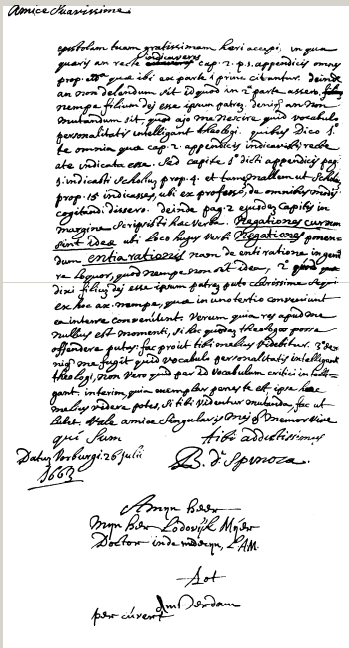 Amice Suavissime.
epistolam tuam gratissimam heri accepi, in qua
quæris an recte indicaveris cap. 2. p. 1. appendicis omnes
prop. quæ ibi ex parte 1 princ. citantur. deinde
an non delendum sit id quod in 2 parte assero,
nempe filium dej esse ipsum patrem. deniq an non
mutandum sit, quod ajo me nescire quid vocabulo
personalitatis intelligant theologi. quibus Dico 1°
te omnia quæ cap. 2. appendicis indicavisti recte
ate indicata esse. Sed capite 1° dicti appendicis pag
1. indicasti Scholium prop. 4. et tamen mallem ut Schol.
prop. 15 indicasses, ubi ex professo, de omnibus modis
cogitandi dissero. deinde pag. 2 ejusdem Capitis in
margine Scripsisti hæc verba. Negationes cur non
sint Ideæ ubi loco hujus verbi Negationes ponen-
dum entia rationis nam de ente ratione in gene
re loquor, quod nempe non sit Idea, 2° quod
dixi filium dej esse ipsum patrem puto clarissime sequi
ex hoc ax. nempe, quæ in uno tertio conveniunt
ea inter se conveniunt. Verum quia res apud me
nullius est momenti, si hoc quosdam theologos posse
offendere putes: fac prout tibi melius videbitur. 3° de
niq me fugit quid vocabulo personalitatis intelligant
theologi, non vero quid per id vocabulum critici intelli-
gant. interim, quia exemplar penes te est ipse hæc
melius videre potes, si tibi videntur mutanda, fac ut
lubet. Vale amice Singularis Mej q Memor vive
qui Sum tibi addictissimus
Datum Vorburgi 26 Julii B. d. Spinoza.
1663
Amyn heer
Myn heer Lodovijk Mejer
Doctor in de medecyn, L.A.M.
tot
Amsterdam
per couvert